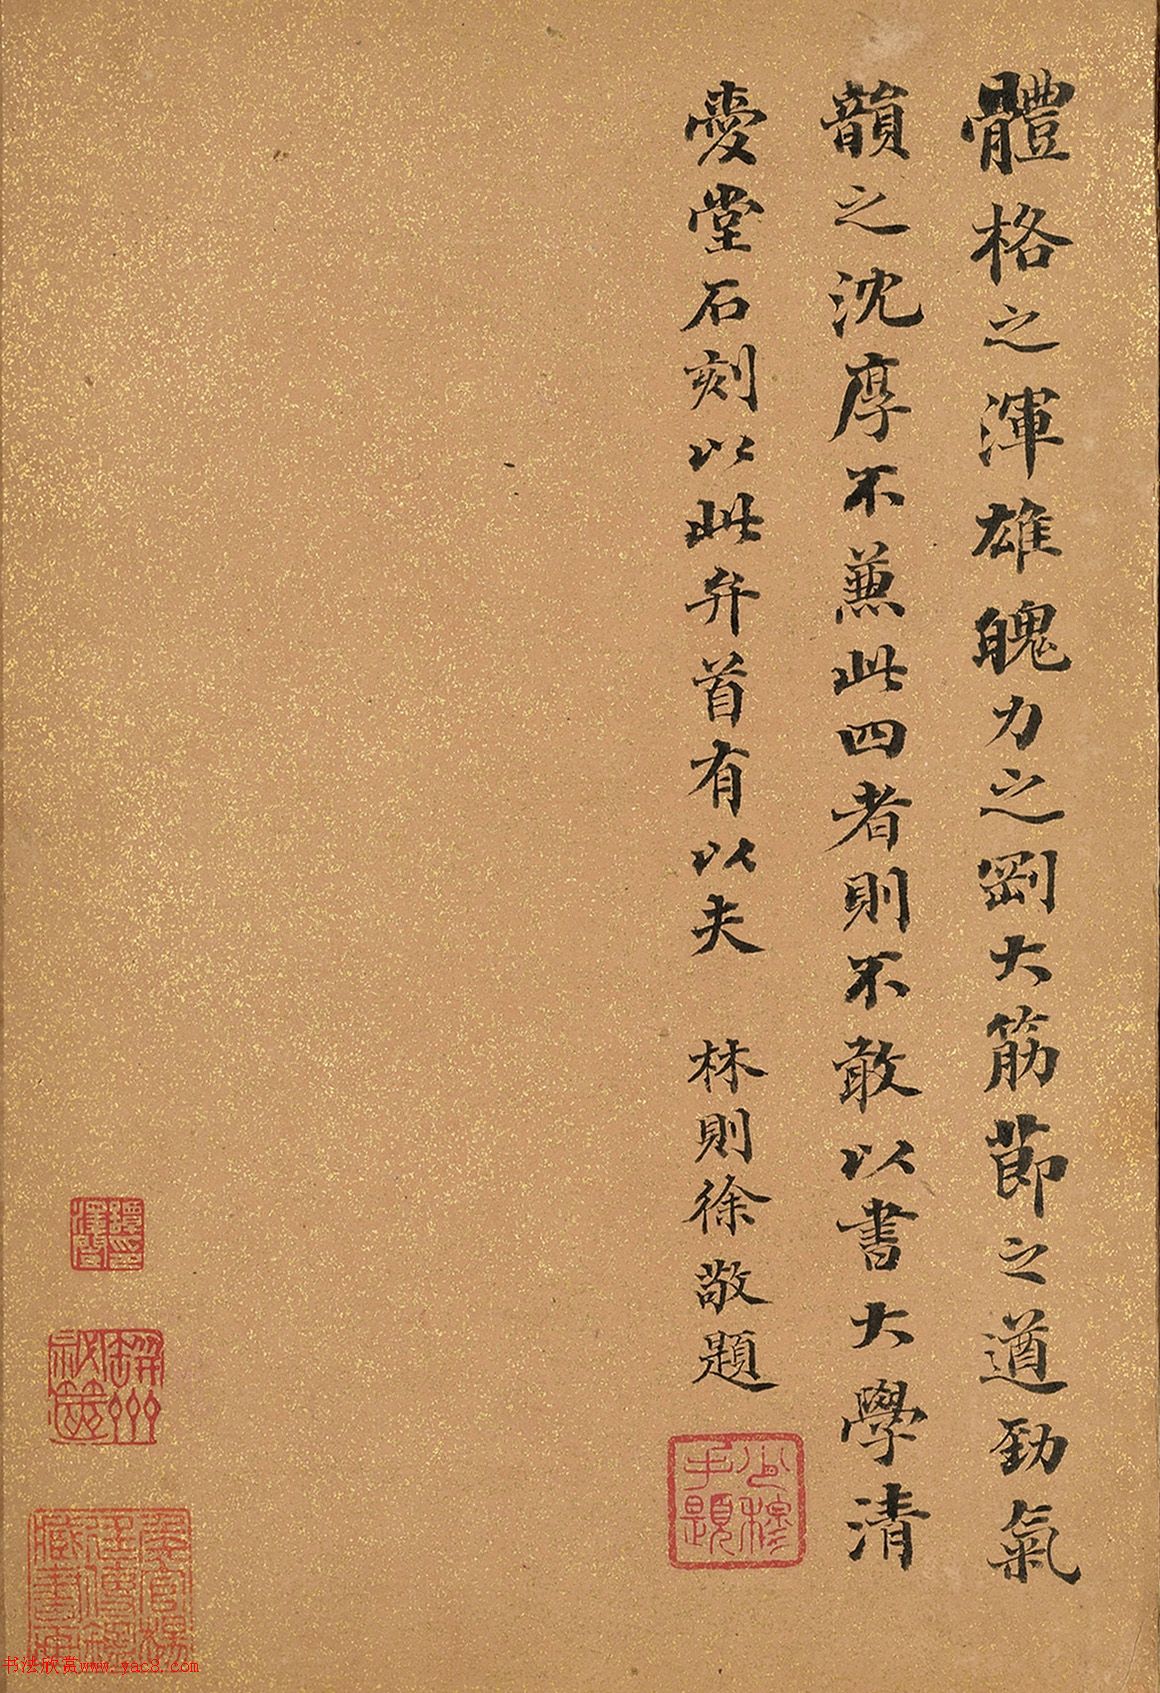 體格之渾雄魄力之剛大筋節之遒勁氣
韻之沈厚不兼此四者則不敢以書大學清
愛堂石刻以此弁首有以夫 林則徐敬題
少穆手題
书法欣赏www.yac8.com